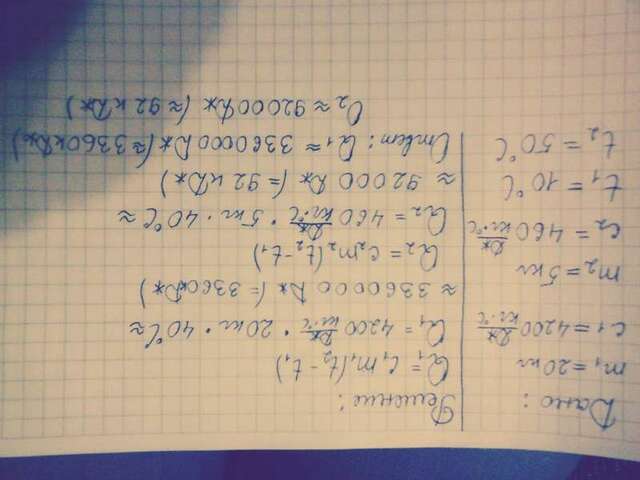 Дано:
m₁=20кг
c₁=4200 Дж/кг·°С
m₂=5кг
c₂=460 Дж/кг·°С
t₁=10°С
t₂=50°С
Решение:
Q₁=c₁m₁(t₂-t₁)
Q₁=4200 Дж/кг·°С · 20кг · 40°С≈
≈3360000 Дж (=3360кДж)
Q₂=c₂m₂(t₂-t₁)
Q₂=460 Дж/кг·°С · 5кг · 40°С≈
≈92000 Дж (=92 кДж)
Ответ: Q₁≈3360000 Дж (≈3360кДж)
Q₂≈92000Дж (≈92 кДж)